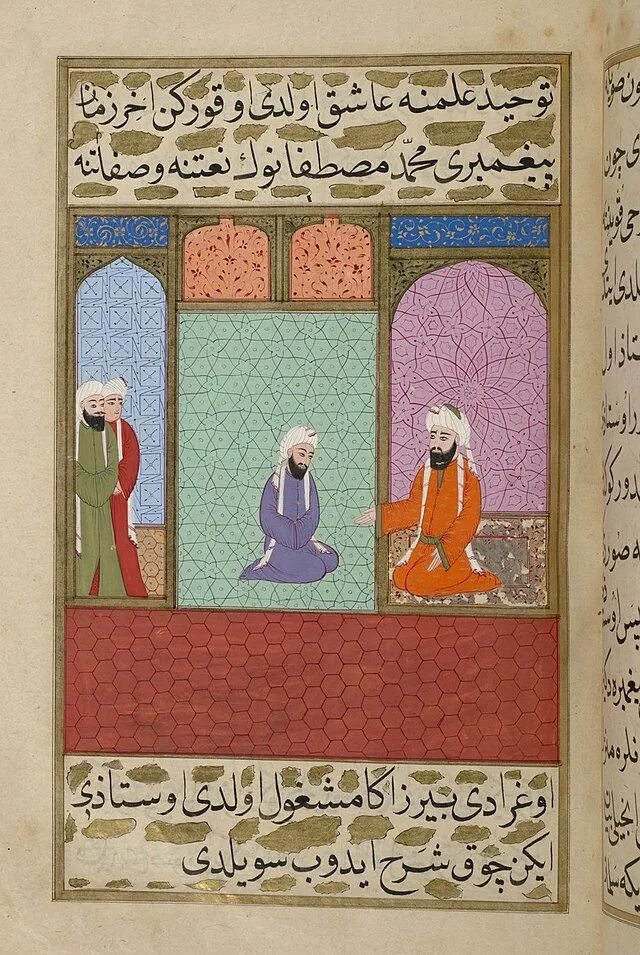 توحید علمنه عاشق اولدی اوقورکن اخر زمان
پیغمبری محمّد مصطفانوك نعتنه وصفاتنه
اوغرادی بیرز اکا مشغول اولدی اوستاذی
ایکن چوق شَرح ایدوب سویلدی